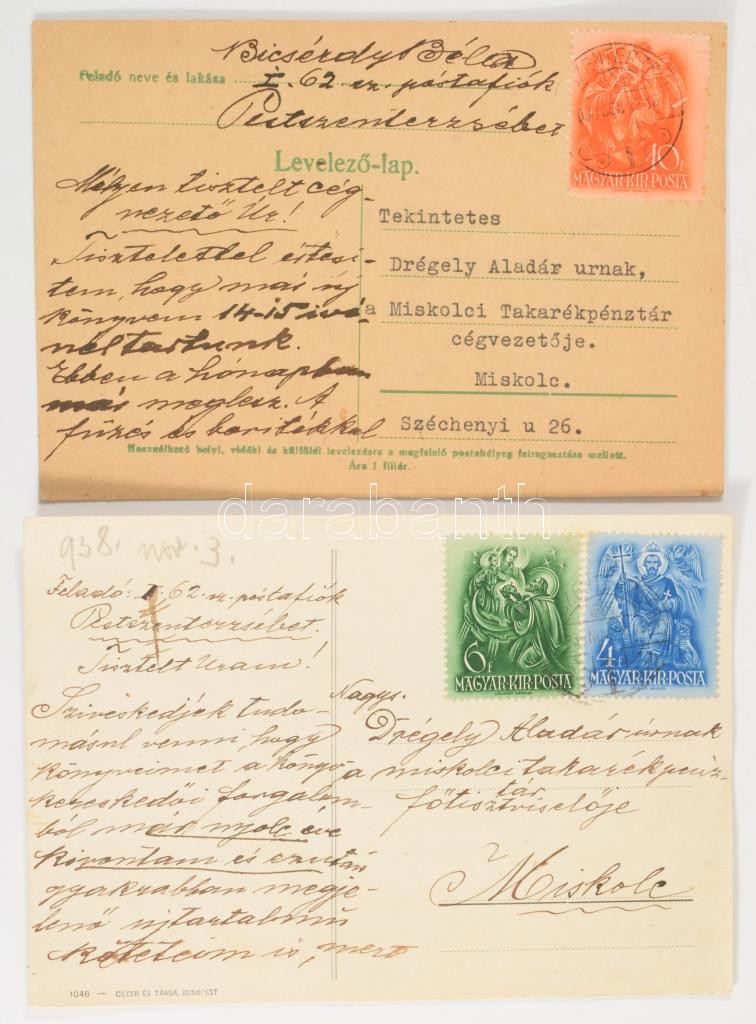 Bicsérdy Béla
Feladó neve és lakása
I. 62 sz. postafiók
Pestszenterzsébet
10f
MAGYAR·KIR·POSTA
Levelező-lap.
Mélyen tisztelt cég-
vezető Úr!
Tisztelettel értesí-
tem, hogy már új
könyvem 14-15 ívé-
nél tartunk.
Ebben a hónapban
már meglesz. A
fűzés és borítékkal
Tekintetes
Drégely Aladár urnak,
a Miskolci Takarékpénztár
cégvezetője.
Miskolc.
Széchenyi u 26.
Használható helyi, vidéki és külföldi levelezésre a megfelelő postabélyeg felragasztása mellett.
Ára 1 fillér.
darabanth
938. nov. 3.
Feladó: I. 62. sz. postafiók
Pestszenterzsébet.
Tisztelt Uram!
Sziveskedjék tudo-
másul venni hogy
könyveimet a könyv-
kereskedői forgalom-
ból már nyolc éve
kivontam és ezután
gyakrabban megje-
lenő ujtartalmú
köteteim is, mert
6f
MAGYAR·KIR·POSTA
4f
MAGYAR·KIR·POSTA
Nagys.
Drégely Aladár úrnak
a miskolci takarékpénz-
tár
főtisztviselője
Miskolc
1046 — CILCER ÉS TÁRSA, BUDAPEST